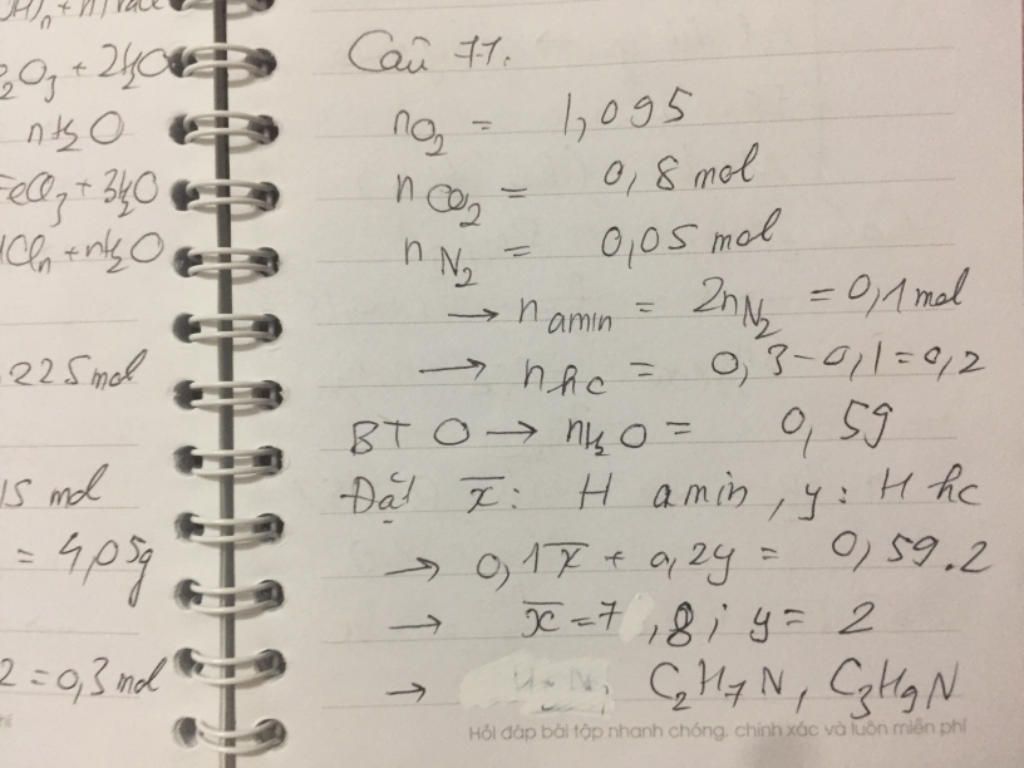 2O3 + 2H2O
nH2O
FeCl3 + 3H2O
HCln + nH2O
,225 mol
15 mol
= 4,05g
2 = 0,3 mol
Câu 71.
nO2 = 1,095
nCO2 = 0,8 mol
nN2 = 0,05 mol
→ namin = 2nN2 = 0,1 mol
→ nhc = 0,3 - 0,1 = 0,2
BT O → nH2O = 0,59
Đặt x̅: H amin, y: H hc
→ 0,1x̅ + 0,2y = 0,59.2
→ x̅ = 7,8; y = 2
→ C2H7N, C3H9N
Hỏi đáp bài tập nhanh chóng, chính xác và luôn miễn phí